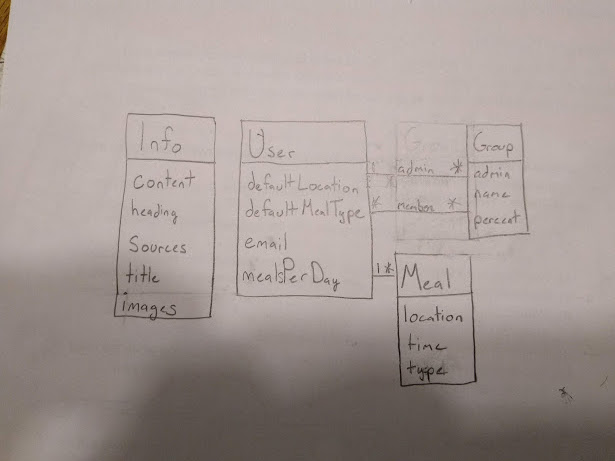 Info
Content
heading
Sources
title
images
User
defaultLocation
defaultMealType
email
mealsPerDay
1 admin *
* member *
Group
admin
name
percent
1 *
Meal
location
time
type